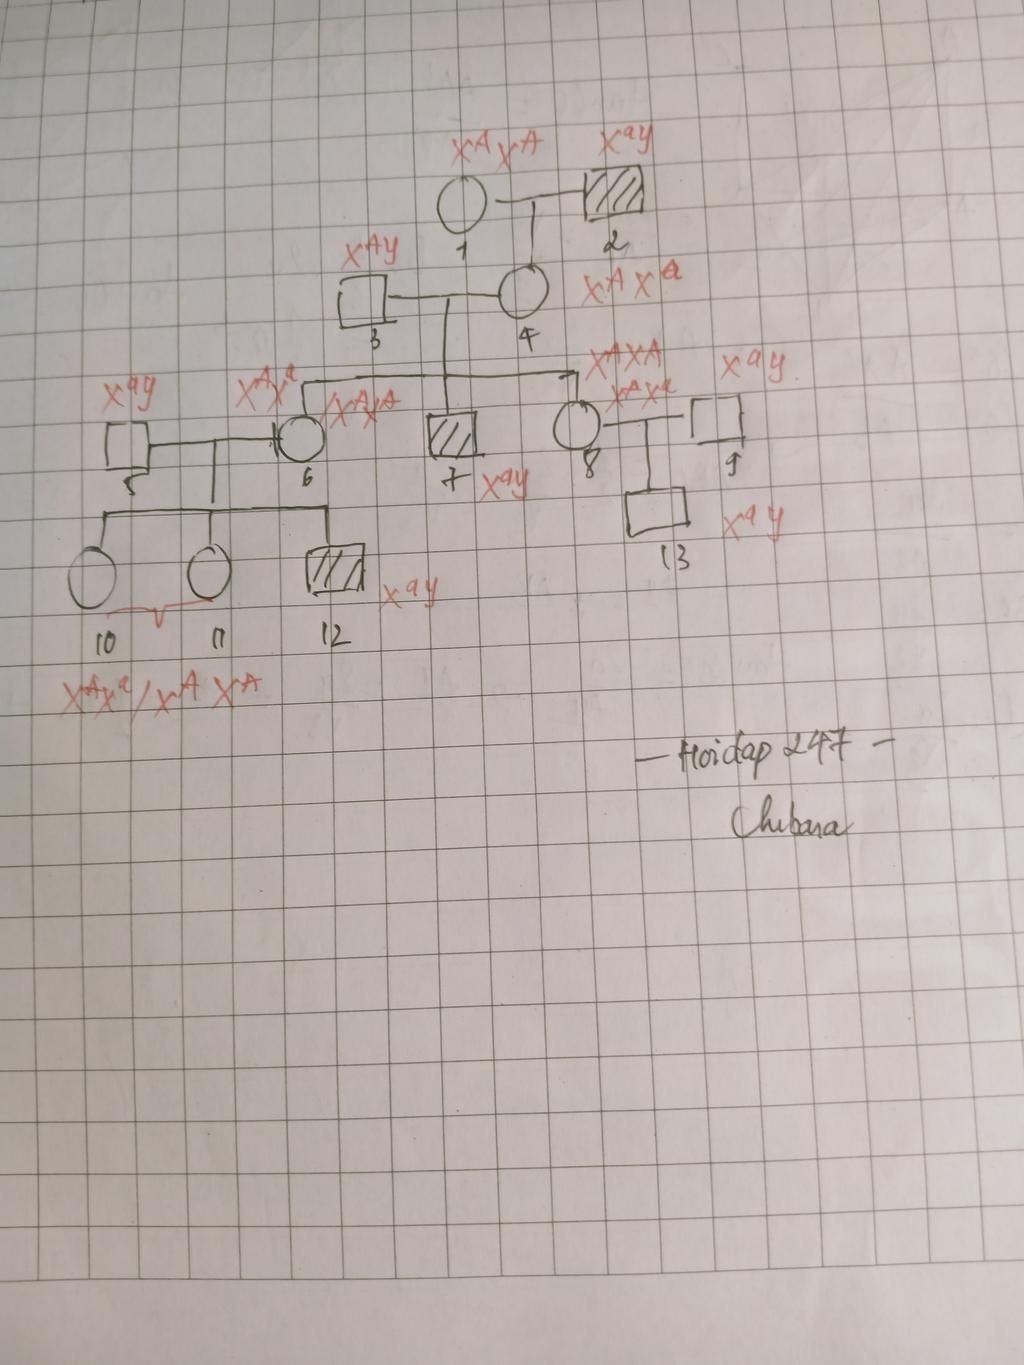 X^A X^A X^a y
1 2
X^A y X^A X^a
3 4
X^A X^A X^a y.
X^a y X^A X^a /X^A X^A X^A X^a
5 6 7 X^a y 8 9
X^a y
13
X^a y
10 11 12
X^A X^a / X^A X^A
- Hoidap 247 -
Chibana